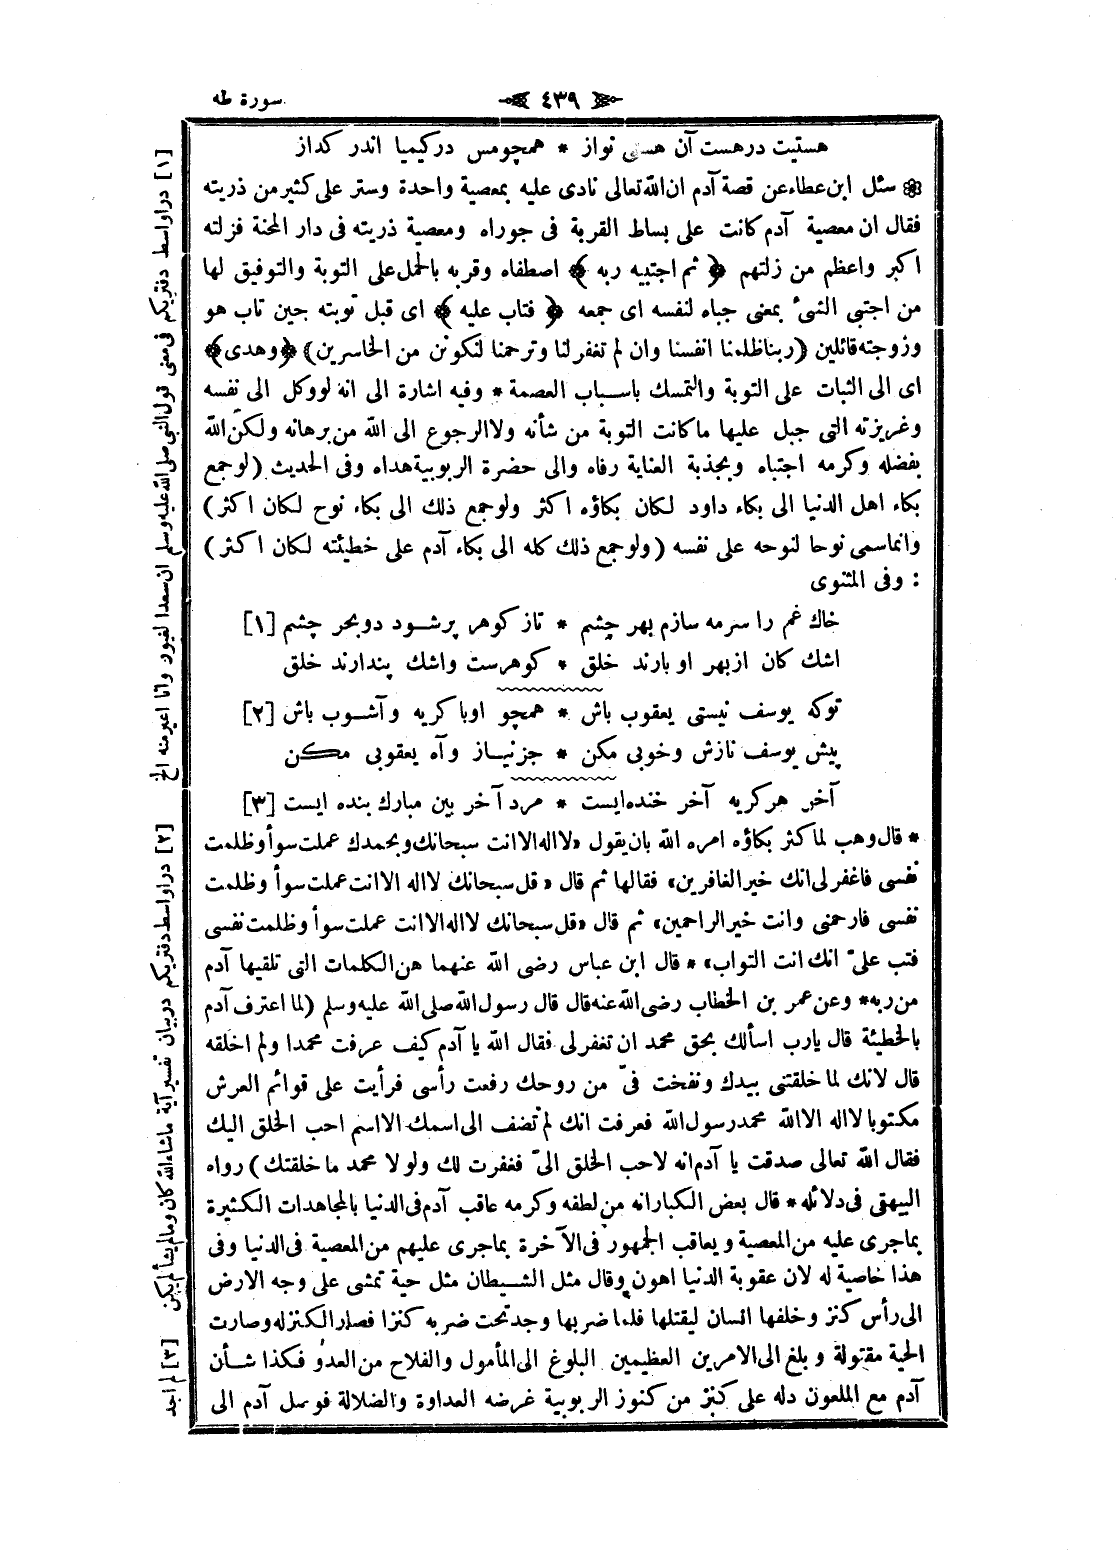 سورة طه
٤٣٩
هستیت درهست آن هستی نواز * همچومس درکیمیا اندر کداز
سئل ابن عطاء عن قصة آدم ان الله تعالى نادى عليه بمعصية واحدة وستر على كثير من ذريته
فقال ان معصية آدم كانت على بساط القربة فى جوراه ومعصية ذريته فى دار المحنة فزلته
اكبر واعظم من زلتهم ﴿ ثم اجتبيه ربه ﴾ اصطفاه وقربه بالحمل على التوبة والتوفيق لها
من اجتبى الشئ بمعنى جباه لنفسه اى جمعه ﴿ فتاب عليه ﴾ اى قبل توبته حين تاب هو
وزوجته قائلين (ربنا ظلمنا انفسنا وان لم تغفر لنا وترحمنا لنكونن من الخاسرين) ﴿ وهدى ﴾
اى الى الثبات على التوبة والتمسك باسباب العصمة * وفيه اشارة الى انه لو وكل الى نفسه
وغريزته التى جبل عليها ما كانت التوبة من شأنه ولا الرجوع الى الله من برهانه ولكن الله
بفضله وكرمه اجتباه وبجذبة العناية رفاه والى حضرة الربوبية هداه وفى الحديث (لو جمع
بكاء اهل الدنيا الى بكاء داود لكان بكاؤه اكثر ولو جمع ذلك الى بكاء نوح لكان اكثر)
وانما سمى نوحا لنوحه على نفسه (ولو جمع ذلك كله الى بكاء آدم على خطيئته لكان اكثر)
: وفى المثنوى
خاك غم را سرمه سازم بهر چشم * تاز كوهر پرشود دو بحر چشم [١]
اشك كان ازبهر او بارند خلق * كوهرست واشك پندارند خلق
توكه يوسف نيستى يعقوب باش * همچو او باكريه وآشوب باش [٢]
پيش يوسف نازش وخوبى مكن * جز نياز وآه يعقوبى مكن
آخر هر كريه آخر خنده ايست * مرد آخر بين مبارك بنده ايست [٣]
* قال وهب لما كثر بكاؤه امره الله بان يقول «لا اله الا انت سبحانك وبحمدك عملت سوأ وظلمت
نفسى فاغفر لى انك خير الغافرين» فقالها ثم قال «قل سبحانك لا اله الا انت عملت سوأ وظلمت
نفسى فارحمنى وانت خير الراحمين» ثم قال «قل سبحانك لا اله الا انت عملت سوأ وظلمت نفسى
فتب علىّ انك انت التواب» * قال ابن عباس رضى الله عنهما هن الكلمات التى تلقيها آدم
من ربه * وعن عمر بن الخطاب رضى الله عنه قال قال رسول الله صلى الله عليه وسلم (لما اعترف آدم
بالخطيئة قال يارب اسألك بحق محمد ان تغفر لى فقال الله يا آدم كيف عرفت محمدا ولم اخلقه
قال لانك لما خلقتنى بيدك ونفخت فىّ من روحك رفعت رأسى فرأيت على قوائم العرش
مكتوبا لا اله الا الله محمد رسول الله فعرفت انك لم تضف الى اسمك الا اسم احب الخلق اليك
فقال الله تعالى صدقت يا آدم انه لاحب الخلق الىّ فغفرت لك ولولا محمد ما خلقتك) رواه
البيهقى فى دلائله * قال بعض الكبار انه من لطفه وكرمه عاقب آدم فى الدنيا بالمجاهدات الكثيرة
بما جرى عليه من المعصية ويعاقب الجمهور فى الآخرة بما جرى عليهم من المعصية فى الدنيا وفى
هذا خاصية له لان عقوبة الدنيا اهون وقال مثل الشيطان مثل حية تمشى على وجه الارض
الى رأس كنز وخلفها انسان ليقتلها فلما ضربها وجد تحت ضربه كنزا فصار الكنز له وصارت
الحية مقتولة وبلغ الى الامرين العظيمين البلوغ الى المأمول والفلاح من العدو فكذا شأن
آدم مع الملعون دله على كنز من كنوز الربوبية غرضه العداوة والضلالة فوصل آدم الى
[١] در اواسط دفتر يكم فى معنى قول النبى صلى الله عليه وسلم ان سعدا لغيور وانا اغير منه الخ
[٢] در اواسط دفتر يكم در بيان تفسير آية ماشاء الله كان ومالم يشأ لم يكن
[٣] لم اجد